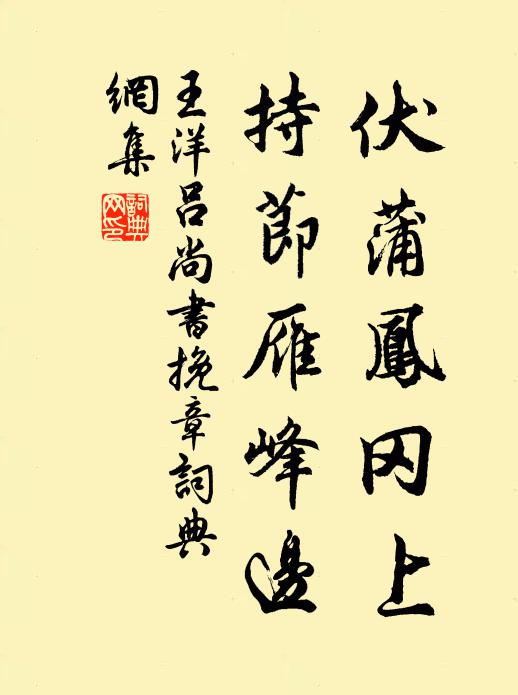 伏蒲鳳冈上
持節雁峰邊
王洋吕尚書挽章詞典
網集
詞典
网印